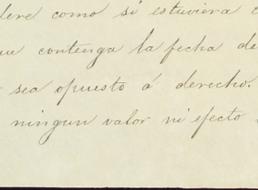 dere como si estuviera
que contenga la fecha de
sea opuesto á derecho.
ningun valor ni efecto